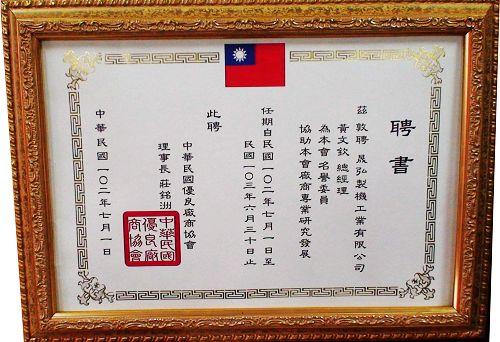 聘書
茲敦聘 晟弘製機工業有限公司
黃文欽 總經理
為本會 名譽委員
協助本會廠商專業研究發展
任期自民國一○二年七月一日至
民國一○三年六月三十日止
此聘
中華民國優良廠商協會
理事長 莊銘洲
中華民國
優良廠
商協會
中華民國一○二年七月一日